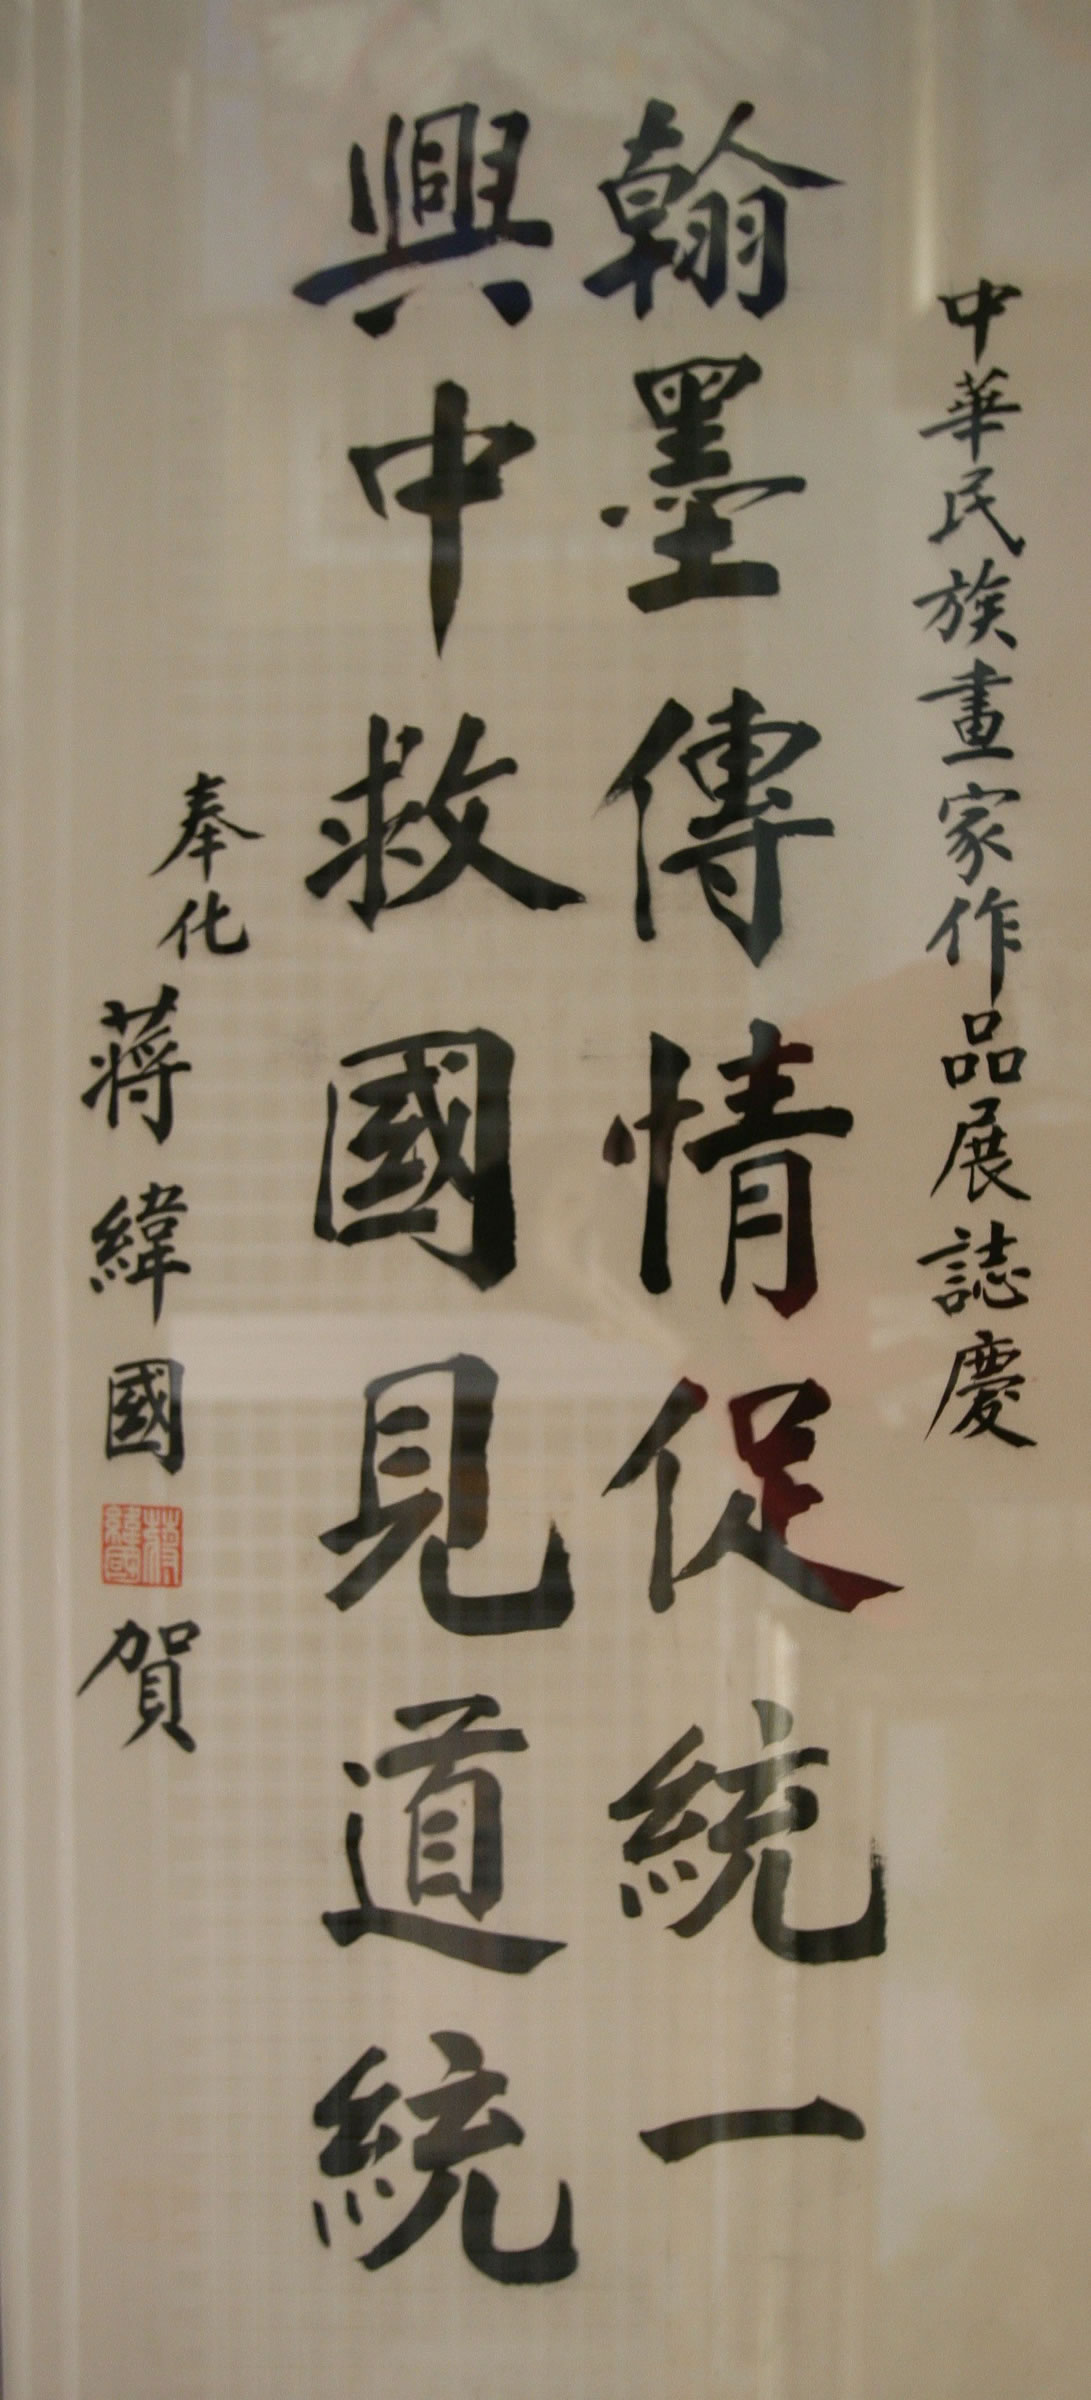 中華民族畫家作品展誌慶
翰墨傳情促統一
興中救國見道統
奉化
蔣緯國
蔣緯國
賀